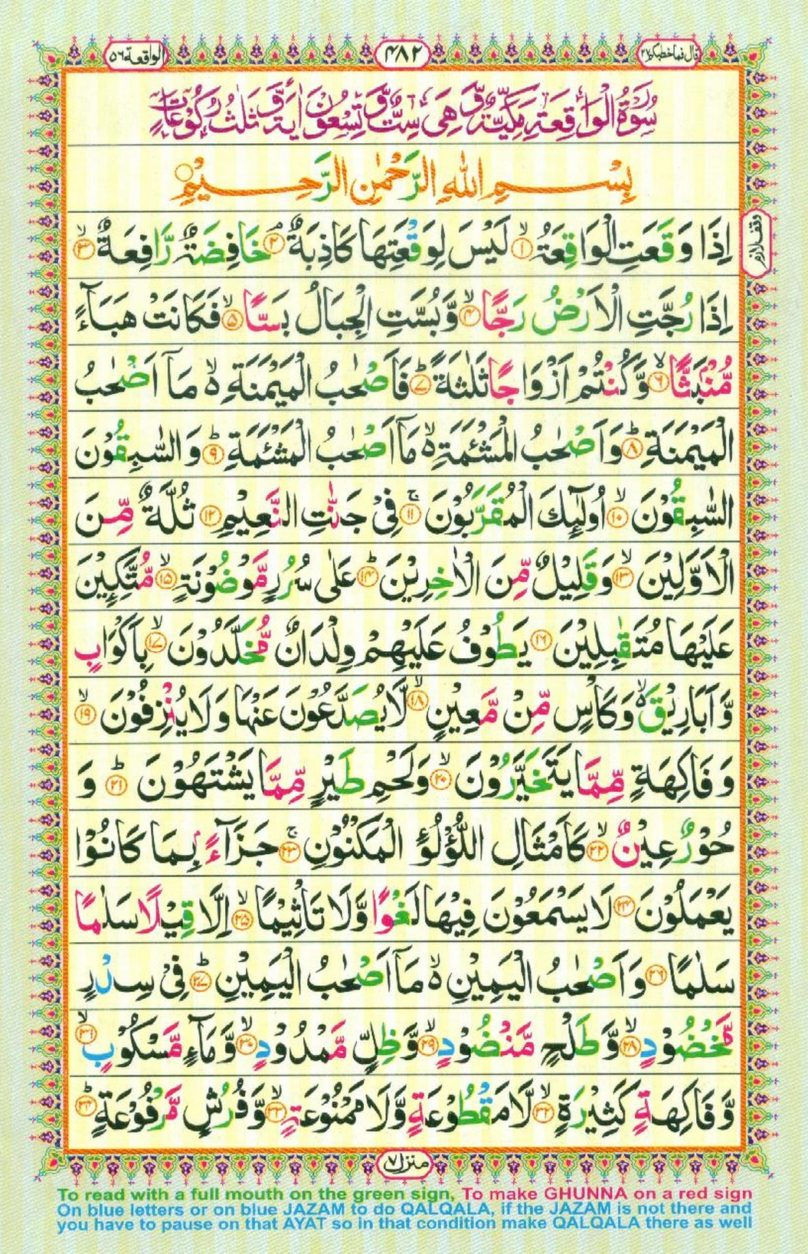 الواقعة ٥٦
٤٨٢
قال فما خطبكم ٢٧
سُوْرَةُ الْوَاقِعَةِ مَكِّيَّةٌ وَّهِيَ سِتٌّ وَّتِسْعُوْنَ اٰيَةً وَّثَلٰثُ رُكُوْعَاتٍ
بِسْمِ اللهِ الرَّحْمٰنِ الرَّحِيْمِ
اِذَا وَقَعَتِ الْوَاقِعَةُ ۙ﴿١﴾ لَيْسَ لِوَقْعَتِهَا كَاذِبَةٌ ۘ﴿٢﴾ خَافِضَةٌ رَّافِعَةٌ ۙ﴿٣﴾
وقف لازم
اِذَا رُجَّتِ الْاَرْضُ رَجًّا ۙ﴿٤﴾ وَّبُسَّتِ الْجِبَالُ بَسًّا ۙ﴿٥﴾ فَكَانَتْ هَبَآءً
مُّنْۢبَثًّا ۙ﴿٦﴾ وَّكُنْتُمْ اَزْوَاجًا ثَلٰثَةً ؕ﴿٧﴾ فَاَصْحٰبُ الْمَيْمَنَةِ ۙ۬ مَاۤ اَصْحٰبُ
الْمَيْمَنَةِ ؕ﴿٨﴾ وَاَصْحٰبُ الْمَشْـَٔمَةِ ۙ۬ مَاۤ اَصْحٰبُ الْمَشْـَٔمَةِ ؕ﴿٩﴾ وَالسّٰبِقُوْنَ
السّٰبِقُوْنَ ۙ﴿١٠﴾ اُولٰٓئِكَ الْمُقَرَّبُوْنَ ۚ﴿١١﴾ فِيْ جَنّٰتِ النَّعِيْمِ ﴿١٢﴾ ثُلَّةٌ مِّنَ
الْاَوَّلِيْنَ ۙ﴿١٣﴾ وَقَلِيْلٌ مِّنَ الْاٰخِرِيْنَ ؕ﴿١٤﴾ عَلٰى سُرُرٍ مَّوْضُوْنَةٍ ۙ﴿١٥﴾ مُّتَّكِـِٕيْنَ
عَلَيْهَا مُتَقٰبِلِيْنَ ﴿١٦﴾ يَطُوْفُ عَلَيْهِمْ وِلْدَانٌ مُّخَلَّدُوْنَ ۙ﴿١٧﴾ بِاَكْوَابٍ
وَّاَبَارِيْقَ ۙ۬ وَكَاْسٍ مِّنْ مَّعِيْنٍ ۙ﴿١٨﴾ لَّا يُصَدَّعُوْنَ عَنْهَا وَلَا يُنْزِفُوْنَ ۙ﴿١٩﴾
وَفَاكِهَةٍ مِّمَّا يَتَخَيَّرُوْنَ ۙ﴿٢٠﴾ وَلَحْمِ طَيْرٍ مِّمَّا يَشْتَهُوْنَ ؕ﴿٢١﴾ وَ
حُوْرٌ عِيْنٌ ۙ﴿٢٢﴾ كَاَمْثَالِ اللُّؤْلُؤِ الْمَكْنُوْنِ ۚ﴿٢٣﴾ جَزَآءًۢ بِمَا كَانُوْا
يَعْمَلُوْنَ ﴿٢٤﴾ لَا يَسْمَعُوْنَ فِيْهَا لَغْوًا وَّلَا تَاْثِيْمًا ۙ﴿٢٥﴾ اِلَّا قِيْلًا سَلٰمًا
سَلٰمًا ﴿٢٦﴾ وَاَصْحٰبُ الْيَمِيْنِ ۙ۬ مَاۤ اَصْحٰبُ الْيَمِيْنِ ؕ﴿٢٧﴾ فِيْ سِدْرٍ
مَّخْضُوْدٍ ۙ﴿٢٨﴾ وَّطَلْحٍ مَّنْضُوْدٍ ۙ﴿٢٩﴾ وَّظِلٍّ مَّمْدُوْدٍ ۙ﴿٣٠﴾ وَّمَآءٍ مَّسْكُوْبٍ ۙ﴿٣١﴾
وَّفَاكِهَةٍ كَثِيْرَةٍ ۙ﴿٣٢﴾ لَّا مَقْطُوْعَةٍ وَّلَا مَمْنُوْعَةٍ ۙ﴿٣٣﴾ وَّفُرُشٍ مَّرْفُوْعَةٍ ؕ﴿٣٤﴾
منزل ٧
To read with a full mouth on the green sign, To make GHUNNA on a red sign
On blue letters or on blue JAZAM to do QALQALA, if the JAZAM is not there and
you have to pause on that AYAT so in that condition make QALQALA there as well